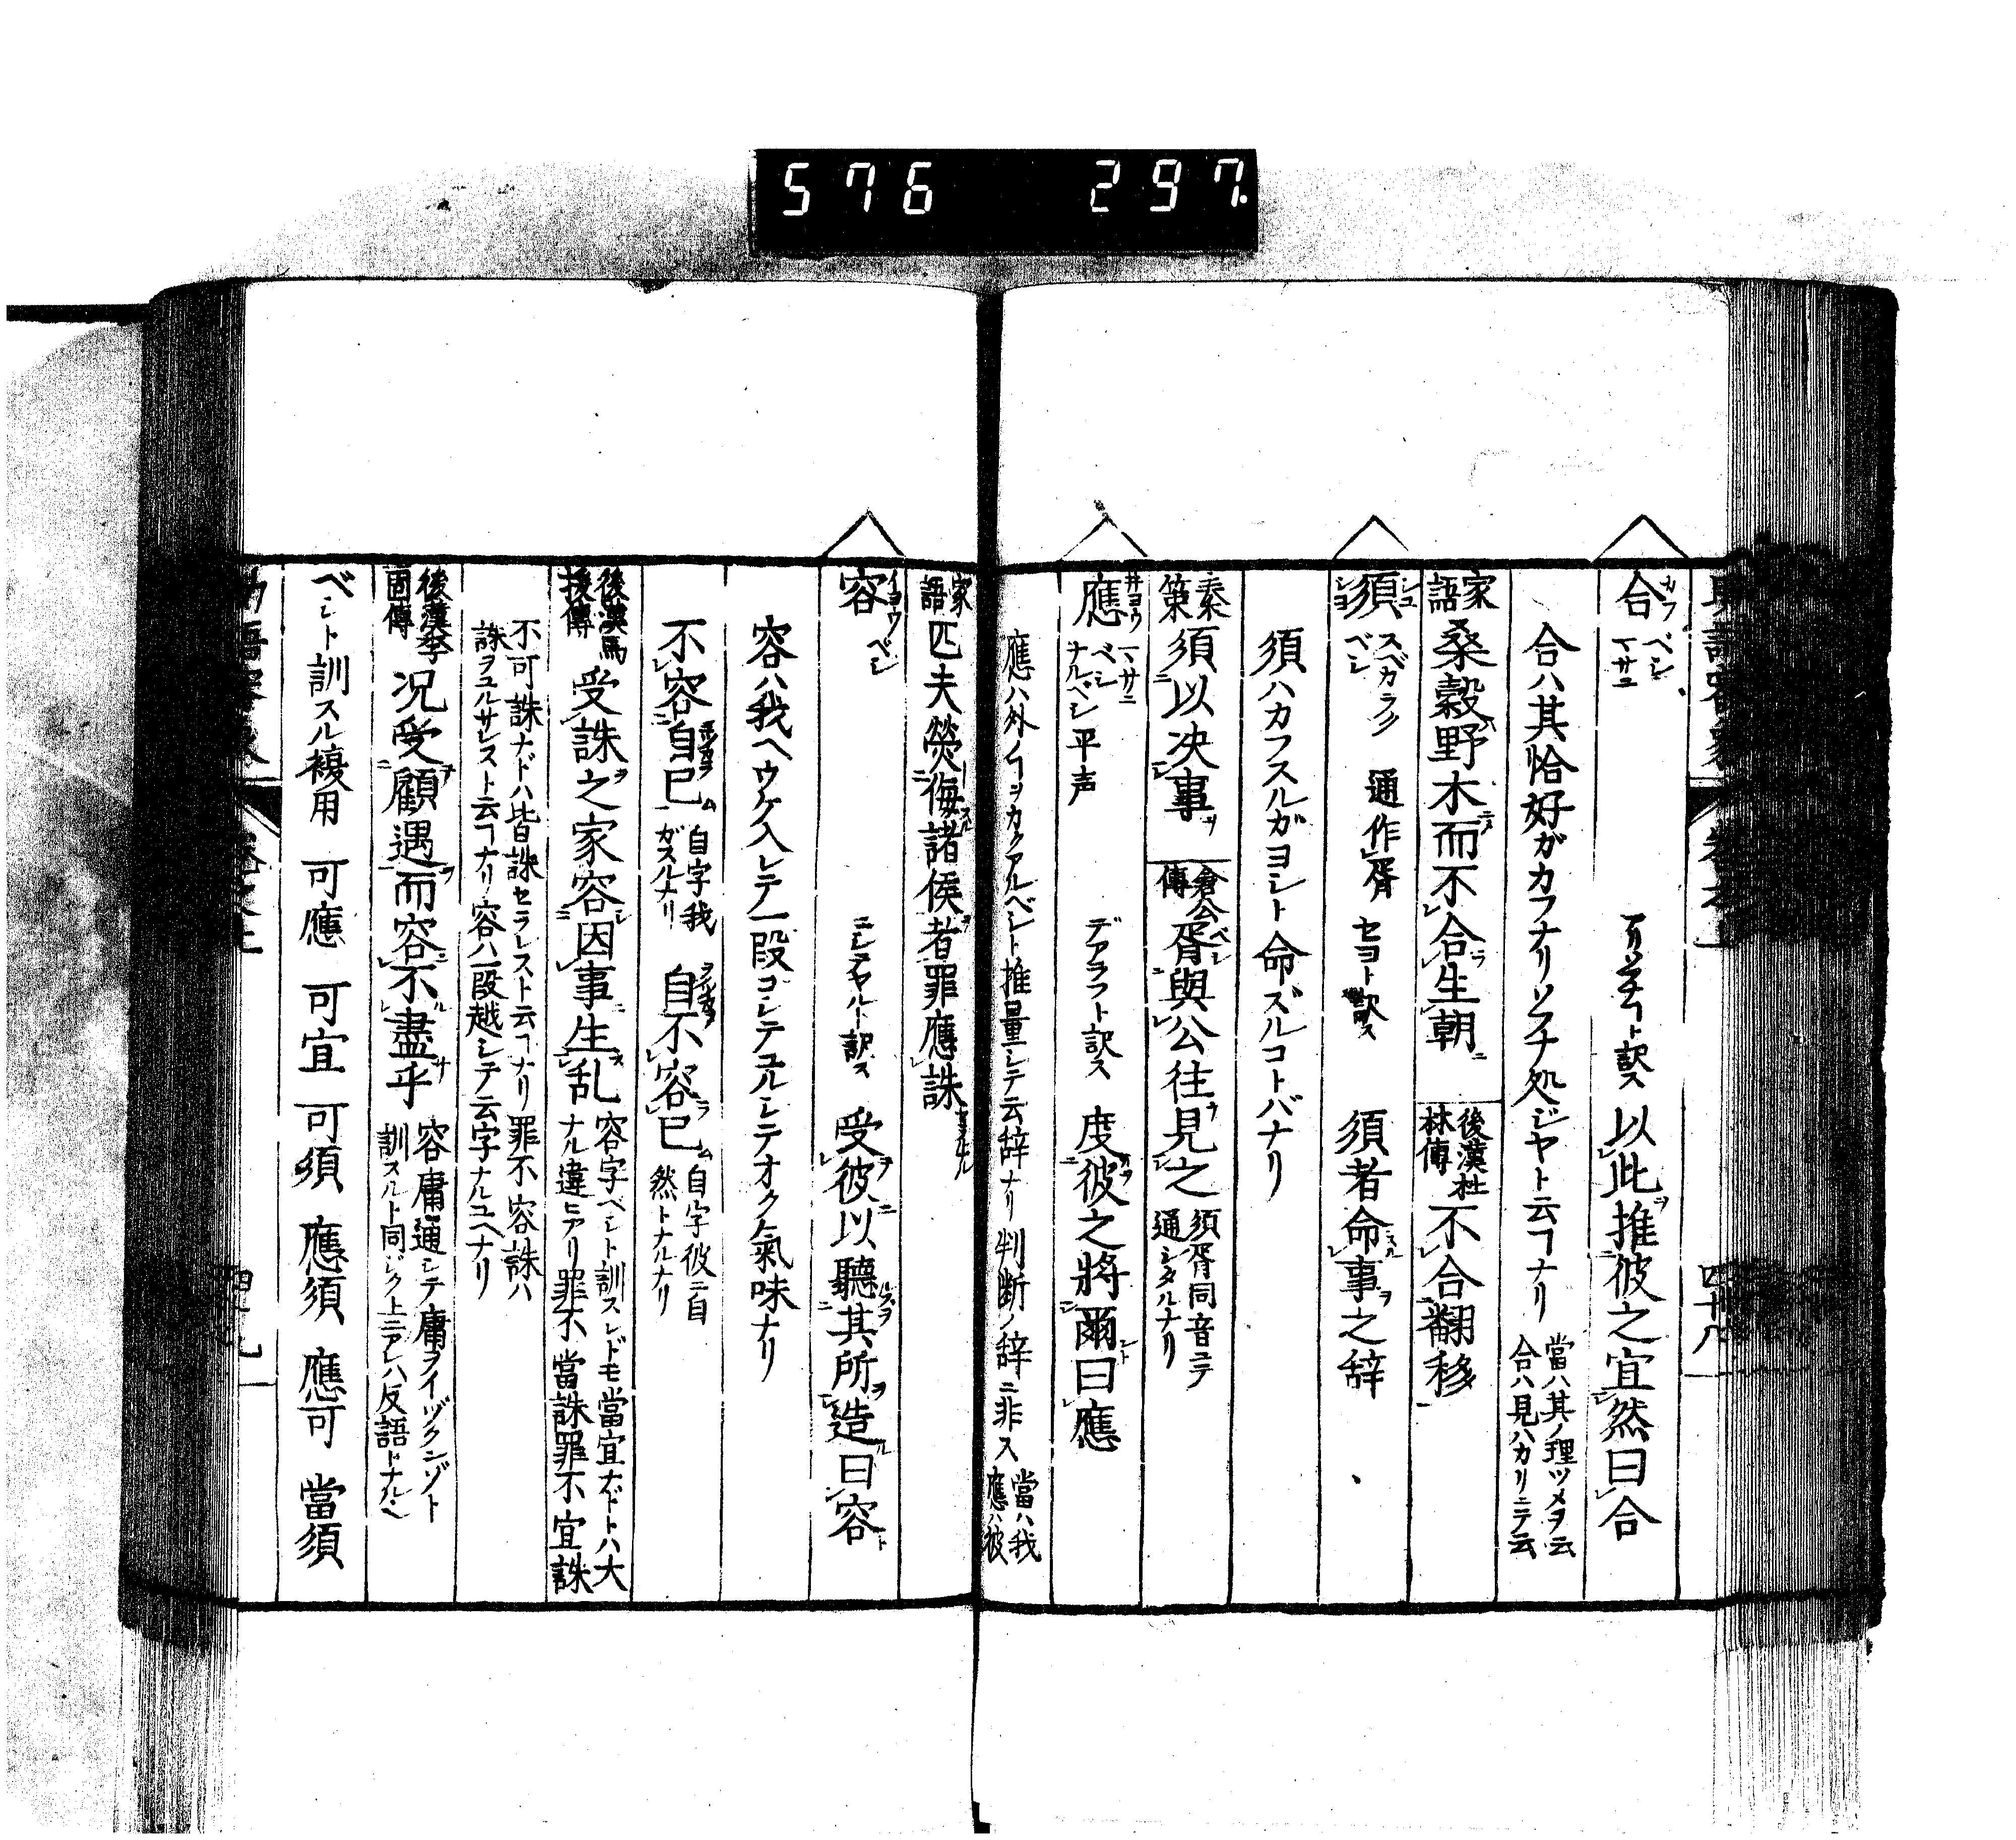 576 297.
合 カフ ベシ マサニ ト訳ス 以此推彼之宜然曰合
合ハ其恰好ガカフナリソフチ処ジヤト云フナリ 當ハ其ノ理ツメヲ云 合ハ見ハカリニテ云
家語 桑穀野木而不合生朝 後漢杜林傳 不合翻移
須 シユ スベカラク ベシ 通作胥 セヨト訳ス 須者命事之辞
須ハカフスルガヨシト命ズルコトバナリ
秦策 須以决事 倉公傳 胥與公往見之 須胥同音ニテ通シタルナリ
應 ヨウ マサニ ベシ ナルベシ 平声 デアラフト訳ス 度彼之將爾曰應
應ハ外ノヿヲカクアルベシト推量シテ云辞ナリ 判断ノ辞ニ非ス 當ハ我 應ハ彼
家語 匹夫熒侮諸侯者罪應誅
容 イヨウ ベシ ニシテヤルト訳ス 受彼以聽其所造曰容
容ハ我ヘウケ入レテ一段コシテユルシテオク氣味ナリ
不容自已 自字我ガスルナリ 自不容已 自字彼ニ自然トナルナリ
後漢馬援傳 受誅之家容因事生乱 容字ベシト訓スレドモ當宜ナドトハ大ナル違ヒアリ罪不當誅罪不宜誅
不可誅ナドハ皆誅セラレスト云フナリ罪不容誅ハ誅ヲユルサレスト云フナリ容ハ一段越シテ云字ナルユヘナリ
後漢李固傳 況受顧遇而容不盡乎 容庸通シテ庸ヲイヅクンゾト訓スルト同ジク上ニアレハ反語トナルヘ
ベシト訓スル複用 可應 可宜 可須 應須 應可 當須